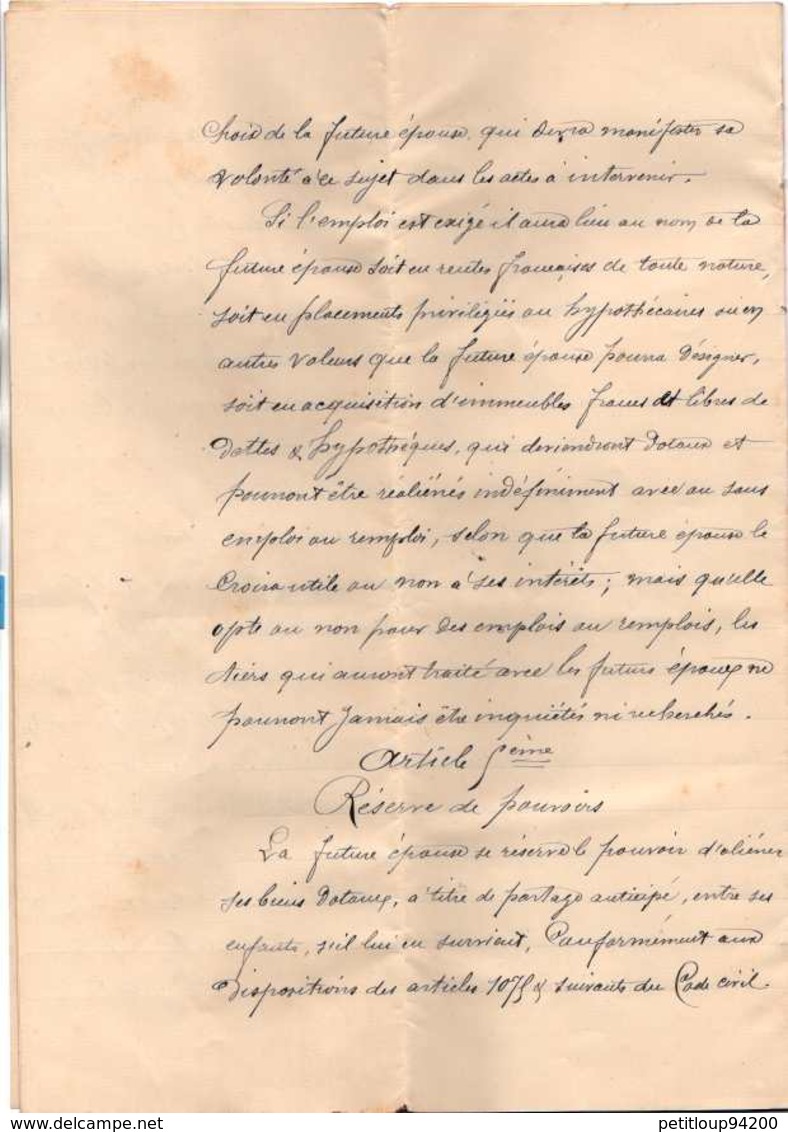 Choix de la future épouse, qui devra manifester sa
volonté à ce sujet dans les actes à intervenir.
Si l'emploi est exigé il aura lieu au nom de la
future épouse soit en rentes françaises de toute nature,
soit en placements privilégiés ou hypothécaires ou en
autres valeurs que la future épouse pourra désigner,
soit en acquisition d'immeubles francs et libres de
dettes & hypothèques, qui deviendront dotaux et
pourront être réaliénés indéfiniment avec ou sans
emploi ou remploi, selon que la future épouse le
croira utile ou non à ses intérêts ; mais qu'elle
opte ou non pour des emplois ou remplois, les
tiers qui auront traité avec les futurs époux ne
pourront jamais être inquiétés ni recherchés.
Article 5ème
Réserve de pouvoirs
La future épouse se réserve le pouvoir d'aliéner
ses biens dotaux, à titre de partage anticipé, entre ses
enfants, s'il lui en survient, conformément aux
dispositions des articles 1075 & suivants du Code civil.
petitloup94200